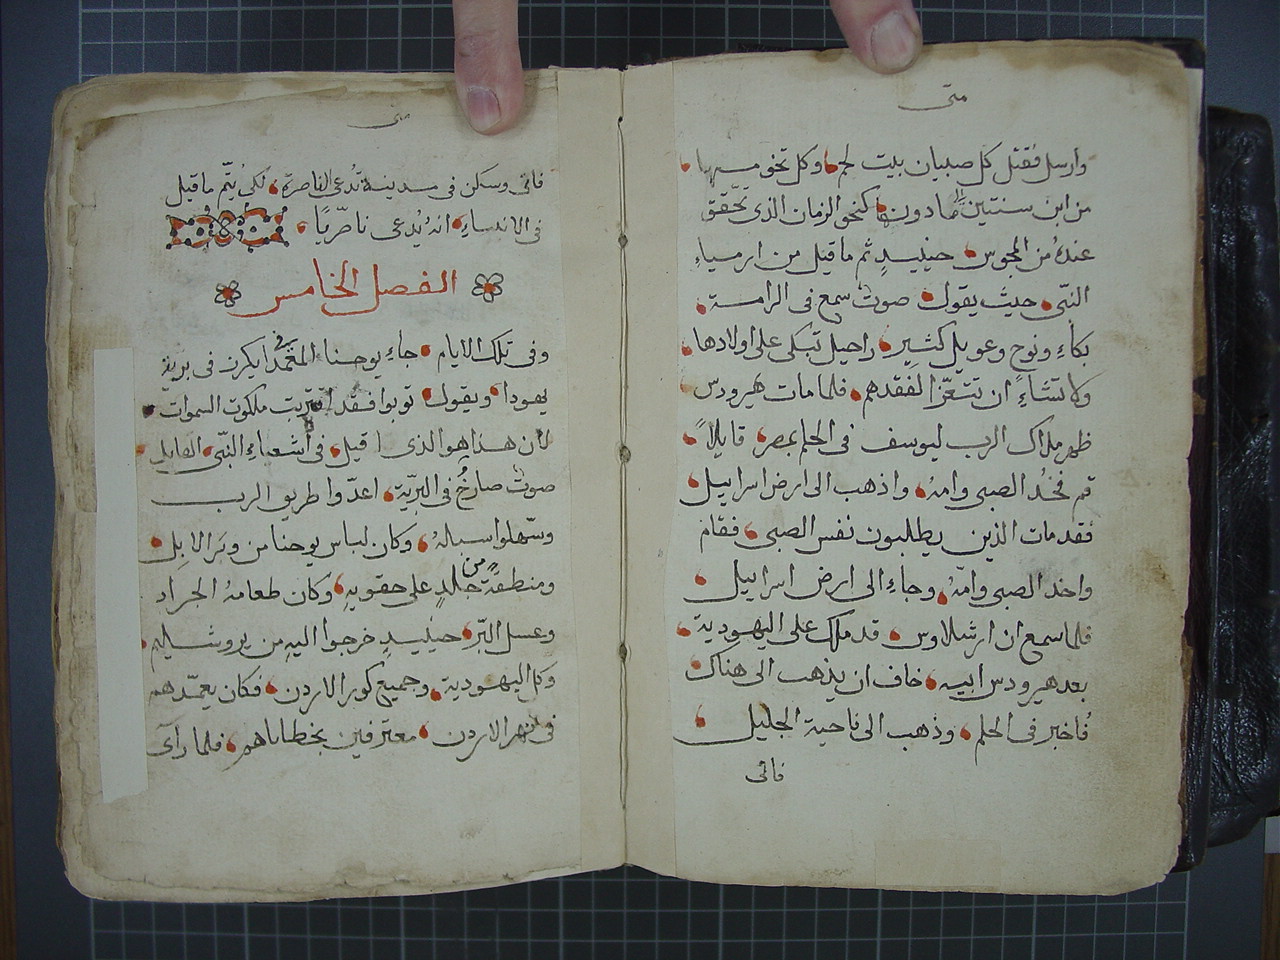 متى
وارسل فقتل كل صبيان بيت لحم وكل تخومها
من ابن سنتين فما دونها كنحو الزمان الذي تحقق
عنده من المجوس حينيذٍ تم ما قيل من ارمياءِ
النبي حيث يقول صوتٌ سمع في الرامة
بكاءِ ونوح وعويل كثير راحيل تبكي على اولادها
ولا تشاءِ ان تتعزا لفقدهم فلما مات هيرودس
ظهر ملاك الرب ليوسف في الحلم بمصر قايلاً
قم فخُد الصبي وامهُ واذهب الى ارض اسراييل
فقد مات الذين يطلبون نفس الصبي فقام
واخد الصبي وامّهُ وجاءِ الى ارض اسراييل
فلما سمع ان ارشلاوس قد ملك على اليهودية
بعد هيرودس ابيه خاف ان يذهب الى هناك
فُاخبر في الحلم وذهب الى ناحية الجليل
فاتى
متى
فاتى وسكن في مدينة تُدعى الناصرة لكي يتّم ما قيل
في الانبياءِ انهُ يُدعى ناصريًا
الفصل الخامس
وفي تلك الايام جاءِ يوحنا المعَمّدا يكرز في برية
يهودا ويقول توبوا فقد اقتربت ملكوت السموات
لان هذا هو الذي قيل في اشعياءِ النبي القايل
صوتٌ صارخٌ في البرّية اعدّوا طريق الرب
وسّهلوا سبلهُ وكان لباس يوحنا من وبَر الابل
ومنطقة من جلدٍ على حقويهِ وكان طعامهُ الجراد
وعسل البّر حينيذٍ خرجوا اليه من يروشليم
وكل اليهودية وجميع كور الاردن فكان يعمّدهم
في نهر الاردن معترفين بخطاياهم فلما راى